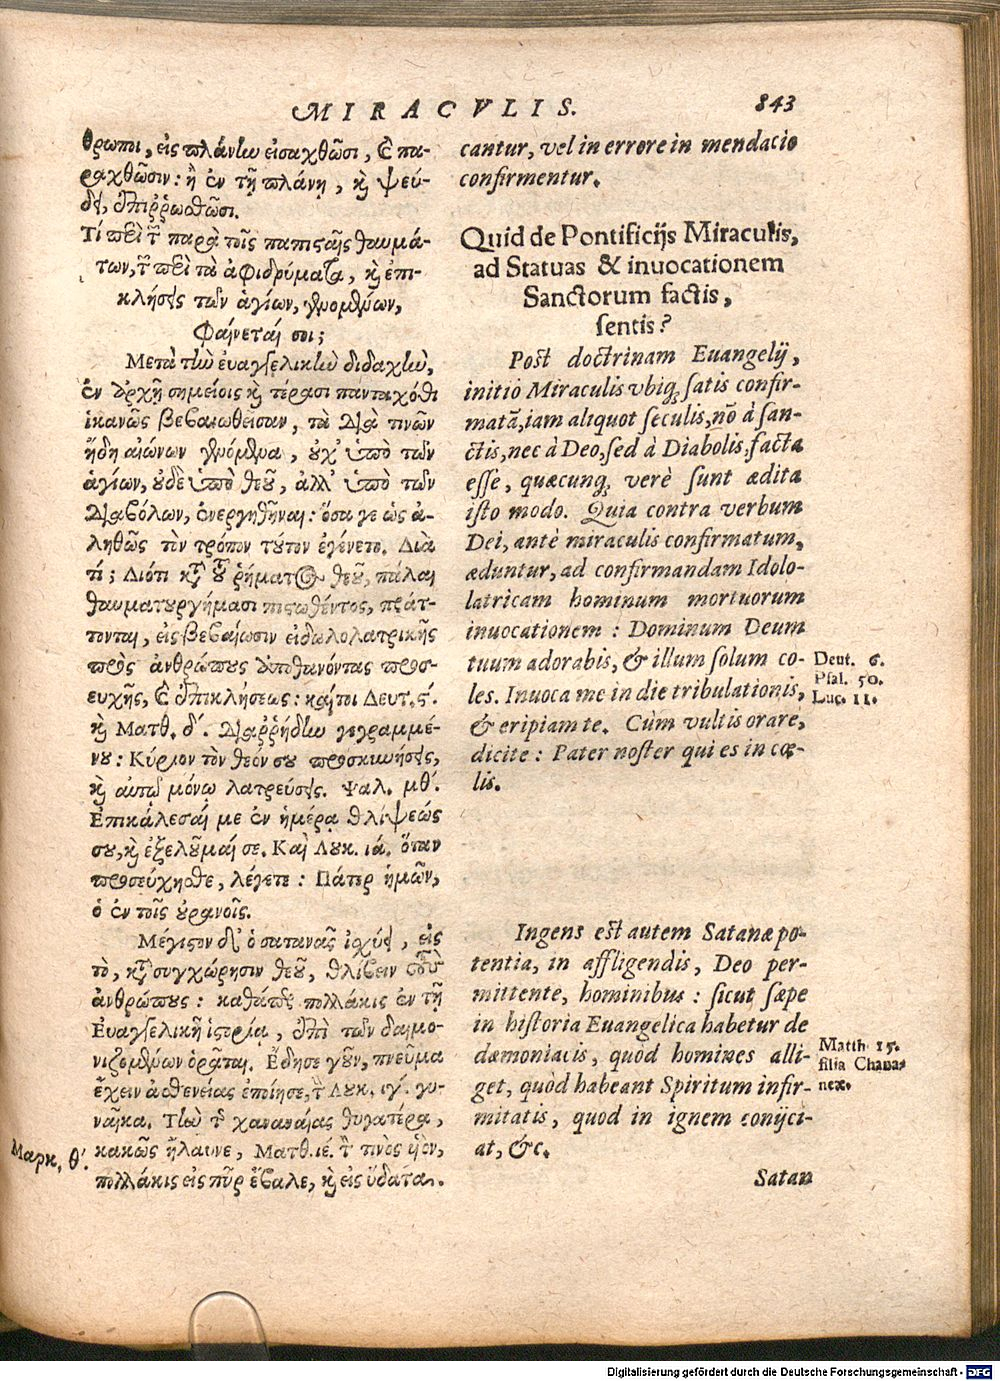 MIRACVLIS. 843
θρωποι, εἰς πλάνην εἰσαχθῶσι, ἢ πα-
ραχθῶσιν: ἢ ἐν τῇ πλάνῃ, καὶ ψεύ-
δει, ἐπιῤῥωσθῶσι.
Τί περὶ τῶν παρὰ τοῖς παπισταῖς θαυμά-
των, τῶν περὶ τὰ ἀφιδρύματα, καὶ ἐπι-
κλήσεις τῶν ἁγίων, γενομένων,
φαίνεταί σοι;
Μετὰ τὴν ἐυαγγελικὴν διδαχὴν,
ἐν ἀρχῇ σημείοις καὶ τέρασι πανταχόθι
ἱκανῶς βεβαιωθεῖσαν, τὰ διὰ τινῶν
ἤδη αἰώνων γενόμενα, οὐχ' ὑπὸ τῶν
ἁγίων, οὐδὲ ὑπὸ θεοῦ, ἀλλ' ὑπὸ τῶν
διαβόλων, ἐνεργηθῆναι: ὅσα γε ὡς ἀ-
ληθῶς τὸν τρόπον τοῦτον ἐγένετο. Διὰ
τί; Διότι κατὰ τοῦ ῥήματος θεοῦ, πάλαι
θαυματουργήμασι πιστωθέντος, πράτ-
τονται, εἰς βεβαίωσιν εἰδωλολατρικῆς
πρὸς ἀνθρώπους ἀποθανόντας προσ-
ευχῆς, καὶ ἐπικλήσεως: καίτοι Δευτ. ϛ́.
καὶ Ματθ. δ'. διαῤῥήδην γεγραμμέ-
νου: Κύριον τὸν θεόν σου προσκυνήσεις,
καὶ αὐτῷ μόνῳ λατρεύσεις. Ψαλ. μθ'.
Ἐπικάλεσαί με ἐν ἡμέρᾳ θλίψεώς
σου, καὶ ἐξελοῦμαί σε. Καὶ Λουκ. ιά. ὅταν
προσεύχησθε, λέγετε: Πάτερ ἡμῶν,
ὁ ἐν τοῖς οὐρανοῖς.
Μέγιστον δὲ ὁ σατανᾶς ἰσχύει, εἰς
τὸ, κατὰ συγχώρησιν θεοῦ, θλίβειν τοὺς
ἀνθρώπους: καθάπερ πολλάκις ἐν τῇ
Ἐυαγγελικῇ ἱστορίᾳ, ἐπὶ τῶν δαιμο-
νιζομένων ὁρᾶται. Ἔδησε γοῦν, πνεῦμα
ἔχειν ἀσθενείας ἐποίησε, τὴν Λουκ. ιγ'. γυ-
ναῖκα. Τὴν τῆς χαναναίας θυγατέρα,
κακῶς ἤλαυνε, Ματθ. ιέ. τὸν τινὸς υἱὸν,
πολλάκις εἰς πῦρ ἔβαλε, καὶ εἰς ὕδατα.
Μαρκ. θ'.
cantur, vel in errore in mendacio
confirmentur.
Quid de Pontificijs Miraculis,
ad Statuas & inuocationem
Sanctorum factis,
sentis?
Post doctrinam Euangelij,
initio Miraculis vbiq; satis confir-
matã, iam aliquot seculis, nõ à san-
ctis, nec à Deo, sed à Diabolis, facta
esse, quæcunq; verè sunt ædita
isto modo. Quia contra verbum
Dei, antè miraculis confirmatum,
æduntur, ad confirmandam Idolo-
latricam hominum mortuorum
inuocationem: Dominum Deum
tuum adorabis, & illum solum co-
les. Inuoca me in die tribulationis,
& eripiam te. Cùm vultis orare,
dicite: Pater noster qui es in cœ-
lis.
Deut. 6.
Psal. 50.
Luc. 11.
Ingens est autem Satanæ po-
tentia, in affligendis, Deo per-
mittente, hominibus: sicut sæpe
in historia Euangelica habetur de
dæmoniacis, quòd homines alli-
get, quòd habeant Spiritum infir-
mitatis, quod in ignem conijci-
at, &c.
Matth. 15.
filia Chana-
neæ.
Satan
Digitalisierung gefördert durch die Deutsche Forschungsgemeinschaft - DFG